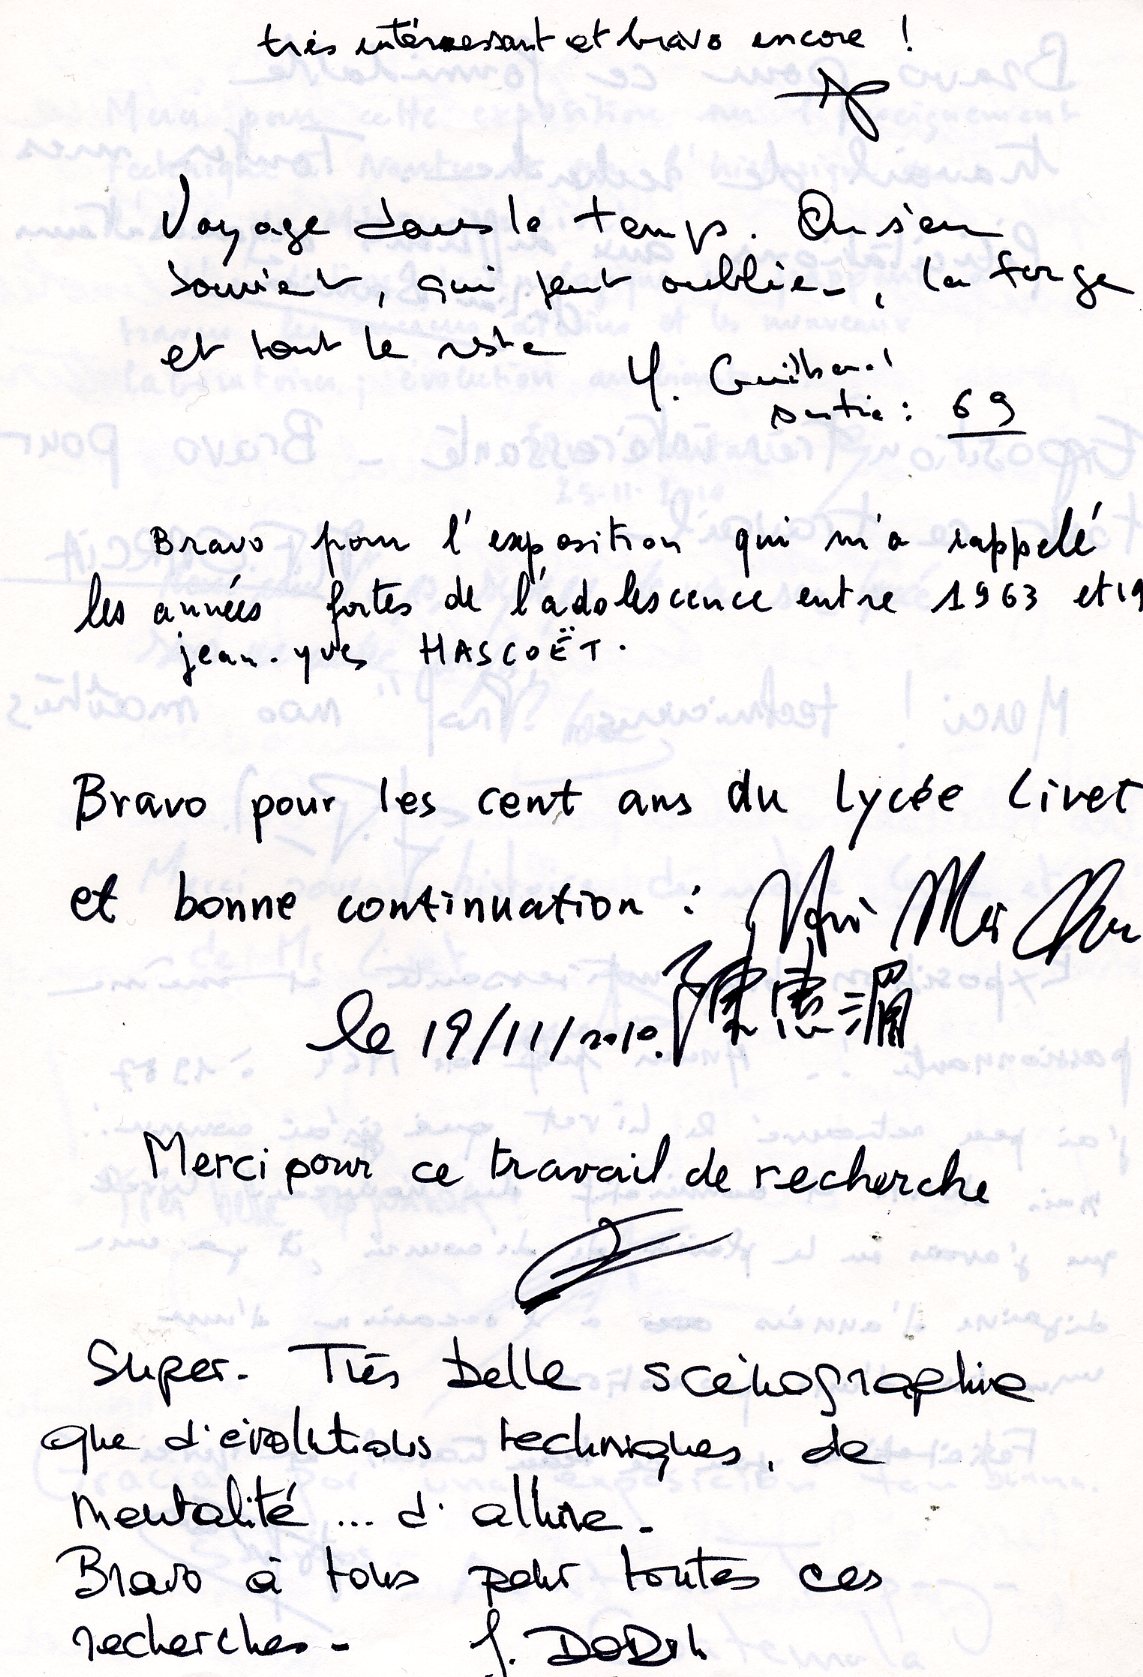 très intéressant et bravo encore !
Voyage dans le temps. On s'en
souvient, qui peut oublier, la forge
et tout le reste
Y.
sortie : 69
Bravo pour l'exposition qui m'a rappelé
les années fortes de l'adolescence entre 1963 et 19
jean-yves HASCOËT.
Bravo pour les cent ans du lycée Livet
et bonne continuation :
le 19/11/2010. 陳惠瀾
Merci pour ce travail de recherche
Super. Très belle scénographie
que d'évolutions techniques, de
mentalité ... d'allure.
Bravo à tous pour toutes ces
recherches - J.